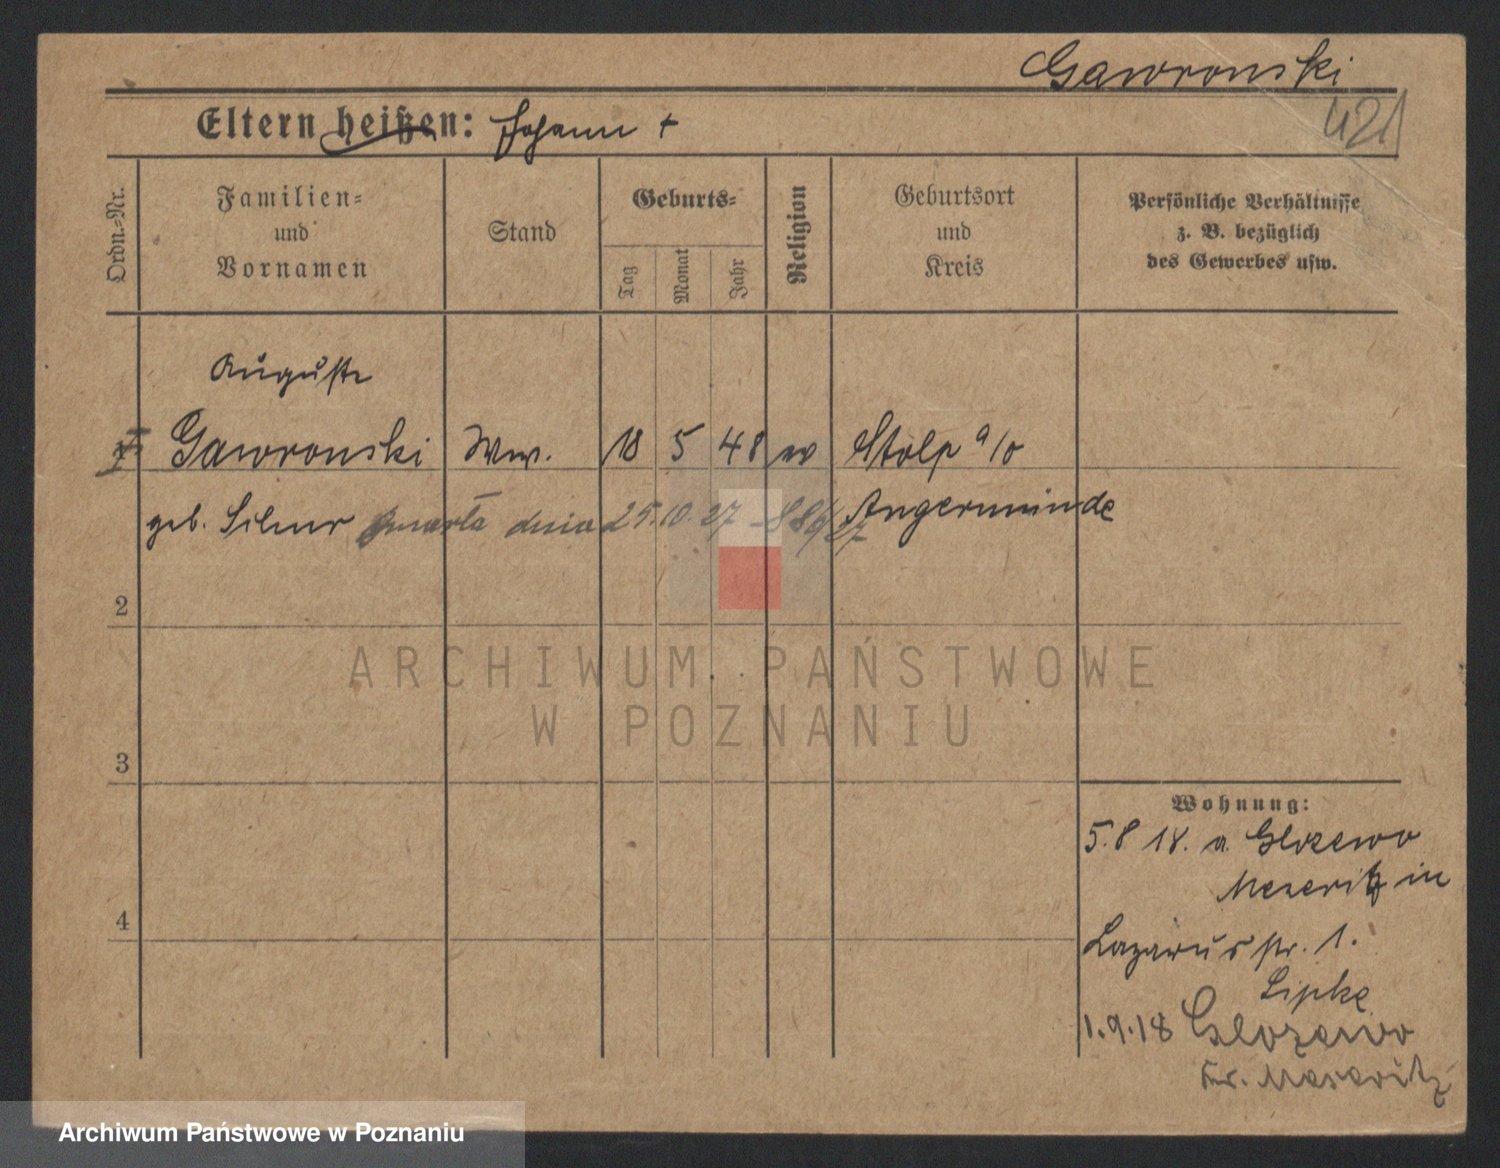 Gaworonski
421
Eltern heißen: Johann +
Ordn.=Nr.
Familien=
und
Vornamen
Stand
Geburts=
Tag
Monat
Jahr
Religion
Geburtsort
und
Kreis
Persönliche Verhältnisse
z. B. bezüglich
des Gewerbes usw.
Auguste
Gaworonski Ww. 18 5 48 ev Stolp a/o
geb. dnia 25.10.27 Angermünde
2
ARCHIWUM PAŃSTWOWE
W POZNANIU
3
Wohnung:
5.8 18. a. Glozewo
Meseritz in
4
Lazarusstr. 1.
Lipke
1.9.18 Glozewo
Kr. Meseritz
Archiwum Państwowe w Poznaniu